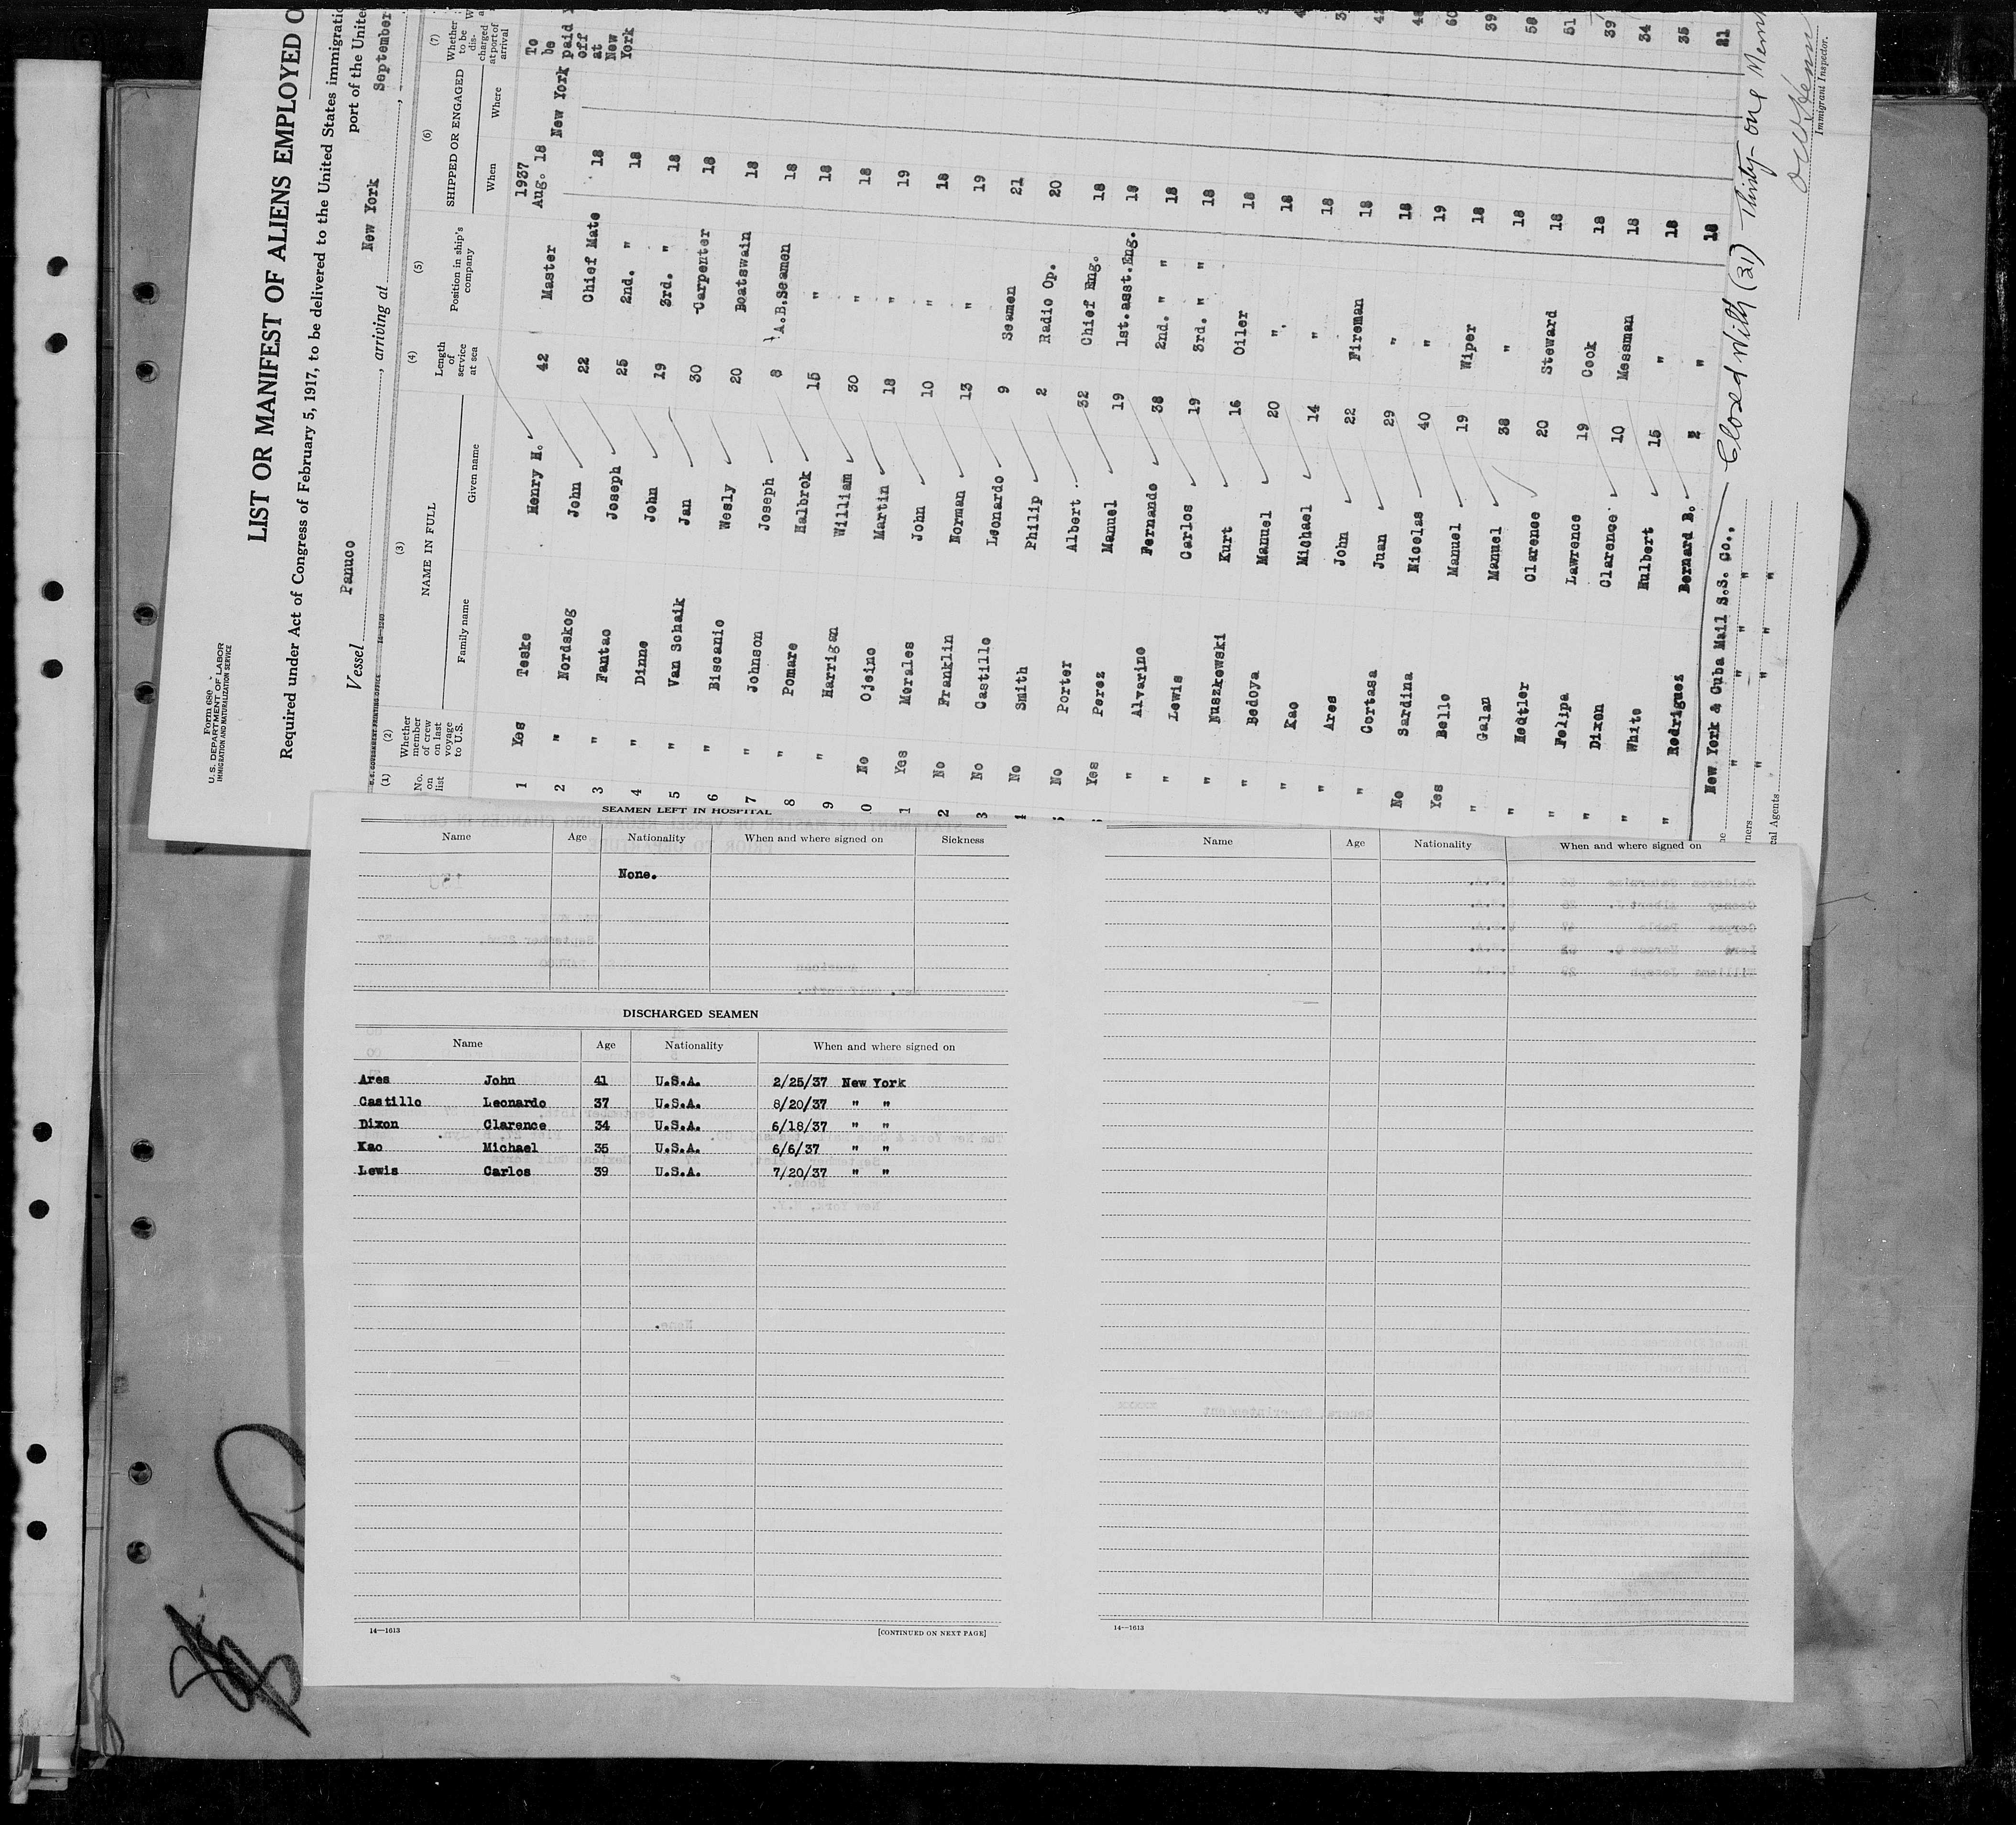 Form 689
U. S. DEPARTMENT OF LABOR
IMMIGRATION AND NATURALIZATION SERVICE
LIST OR MANIFEST OF ALIENS EMPLOYED O
Required under Act of Congress of February 5, 1917, to be delivered to the United States immigratic
port of the Unite
Vessel Panuco, arriving at New York September
(1) No. on list
(2) Whether member of crew on last voyage to U.S.
(3) NAME IN FULL
Family name Given name
(4) Length of service at sea
(5) Position in ship's company
(6) SHIPPED OR ENGAGED
When Where
(7) Whether to be discharged at port of arrival
1937
1 Yes Teske Henry H. 42 Master Aug. 18 New York To be paid off at New York
2 " Nordskog John 22 Chief Mate 18
3 " Fantao Joseph 25 2nd. " 18
4 " Dinne John 19 3rd. " 18
5 " Van Schaik Jan 30 Carpenter 18
6 " Biscanio Wesly 20 Boatswain 18
7 " Johnson Joseph 8 A.B.Seamen 18
8 " Pomare Halbrok 15 " 18
9 " Harrigan William 30 " 18
0 No Ojeino Martin 18 " 19
1 Yes Morales John 10 " 18
2 No Franklin Norman 13 " 19
3 No Castillo Leonardo 9 Seamen 21
No Smith Philip 2 Radio Op. 20
No Porter Albert 32 Chief Eng. 18
Yes Perez Manuel 19 1st.asst.Eng. 18
" Alvarino Fernando 38 2nd. " " 18
" Lewis Carlos 19 3rd. " " 18
" Nuszkowski Kurt 16 Oiler 18
" Bedoya Manuel 20 " 18
" Kao Michael 14 " 18
" Ares John 22 Fireman 18
" Cortasa Juan 29 " 18
No Sardina Nicolas 40 " 19
Yes Bello Manuel 19 Wiper 18
" Galan Manuel 38 " 18
" Hedtler Clarence 20 Steward 18
" Felipa Lawrence 19 Cook 18
" Dixon Clarence 10 Messman 18
" White Hulbert 15 " 18
" Rodriguez Bernard B. 2 " 18
39 58 51 39 34 35 21
New York & Cuba Mail S.S. Co.,
" " " "
" " "
Closed With (31) Thirty-one Mem
Immigrant Inspector.
SEAMEN LEFT IN HOSPITAL
Name Age Nationality When and where signed on Sickness
None.
DISCHARGED SEAMEN
Name Age Nationality When and where signed on
Ares John 41 U.S.A. 2/25/37 New York
Castillo Leonardo 37 U.S.A. 8/20/37 " "
Dixon Clarence 34 U.S.A. 6/18/37 " "
Kao Michael 35 U.S.A. 6/6/37 " "
Lewis Carlos 39 U.S.A. 7/20/37 " "
14—1613
[CONTINUED ON NEXT PAGE]
Name Age Nationality When and where signed on
14—1613